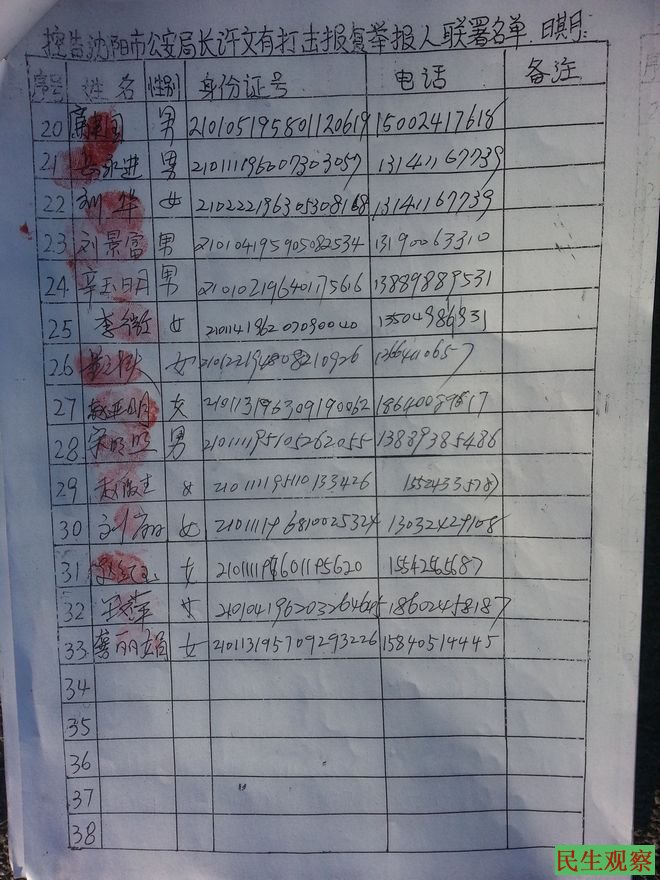 控告沈阳市公安局长许文有打击报复举报人联署名单 日期:
序号 姓名 性别 身份证号 电话 备注
20 男 210105195801120619 15002417618
21 岳永进 男 210111196007303057 13141167739
22 刘华 女 210222196305308168 13141167739
23 刘景富 男 210104195905082534 13190063310
24 辛玉明 男 210102196401175616 13889889531
25 李 女 210114196207090040 13504986931
26 女 210122194808210926
27 赵亚明 女 210113196309190062
28 宋明 男 210111195105262055 13889385486
29 赵 女 210111195110133426
30 刘 女 210111196810025324 13032429108
31 女 210111196601195620
32 王 女 18602458187
33 龚丽娟 女 210113195709293226 15840514445
34
35
36
37
38
民生观察